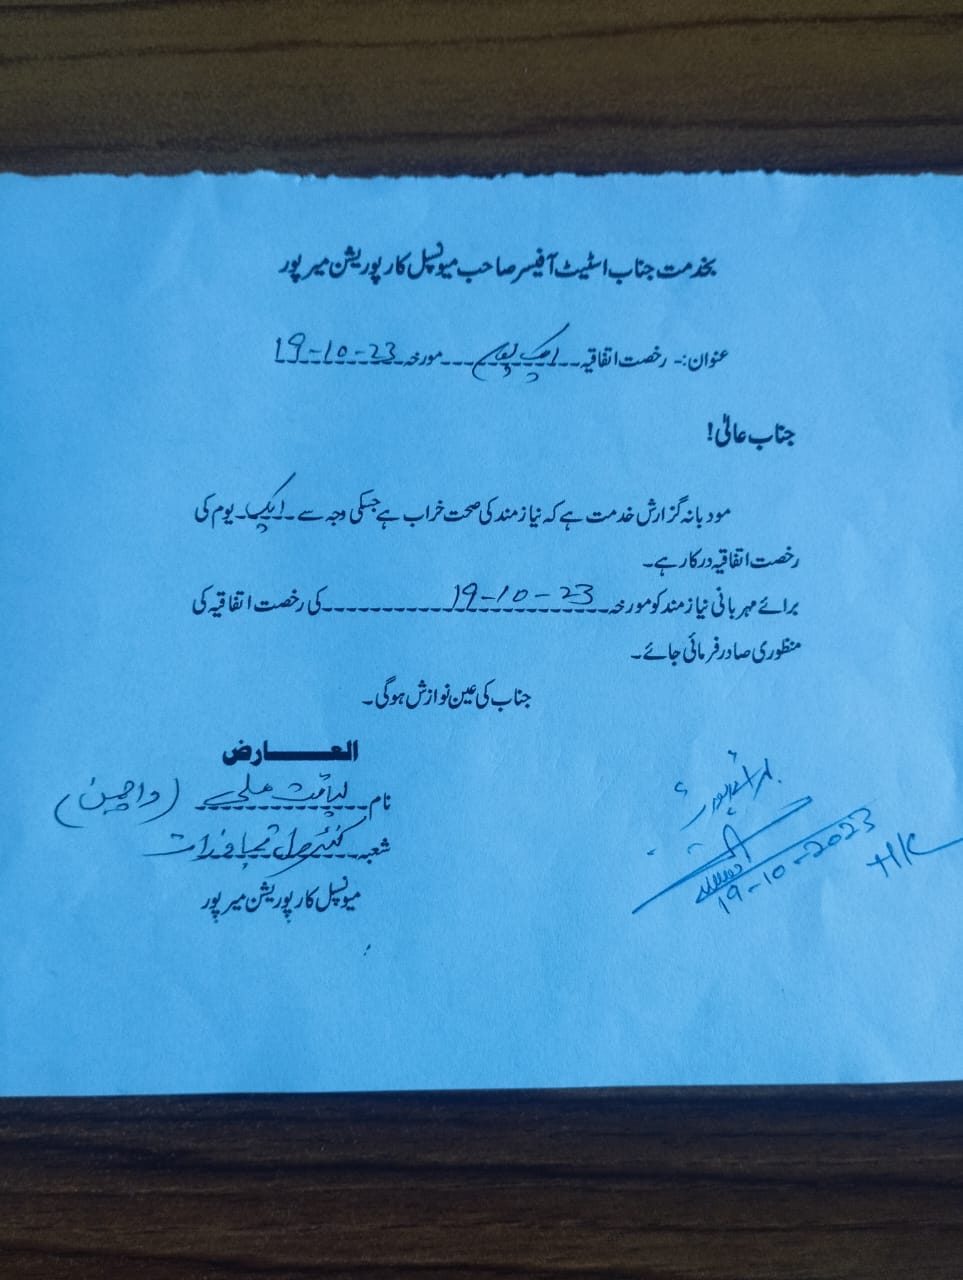 بخدمت جناب اسٹیٹ آفیسر صاحب میونسپل کارپوریشن میرپور
عنوان:- رخصت اتفاقیہ ایک یوم مورخہ 19-10-23
جناب عالیٰ!
مودبانہ گزارش خدمت ہے کہ نیازمند کی صحت خراب ہے جسکی وجہ سے ایک یوم کی
رخصت اتفاقیہ درکار ہے۔
برائے مہربانی نیازمند کو مورخہ 19-10-23 کی رخصت اتفاقیہ کی
منظوری صادر فرمائی جائے۔
جناب کی عین نوازش ہوگی۔
العارض
نام لیاقت علی (واچمین)
شعبہ کنٹرول تجاوزات
میونسپل کارپوریشن میرپور
19-10-2023
H/C